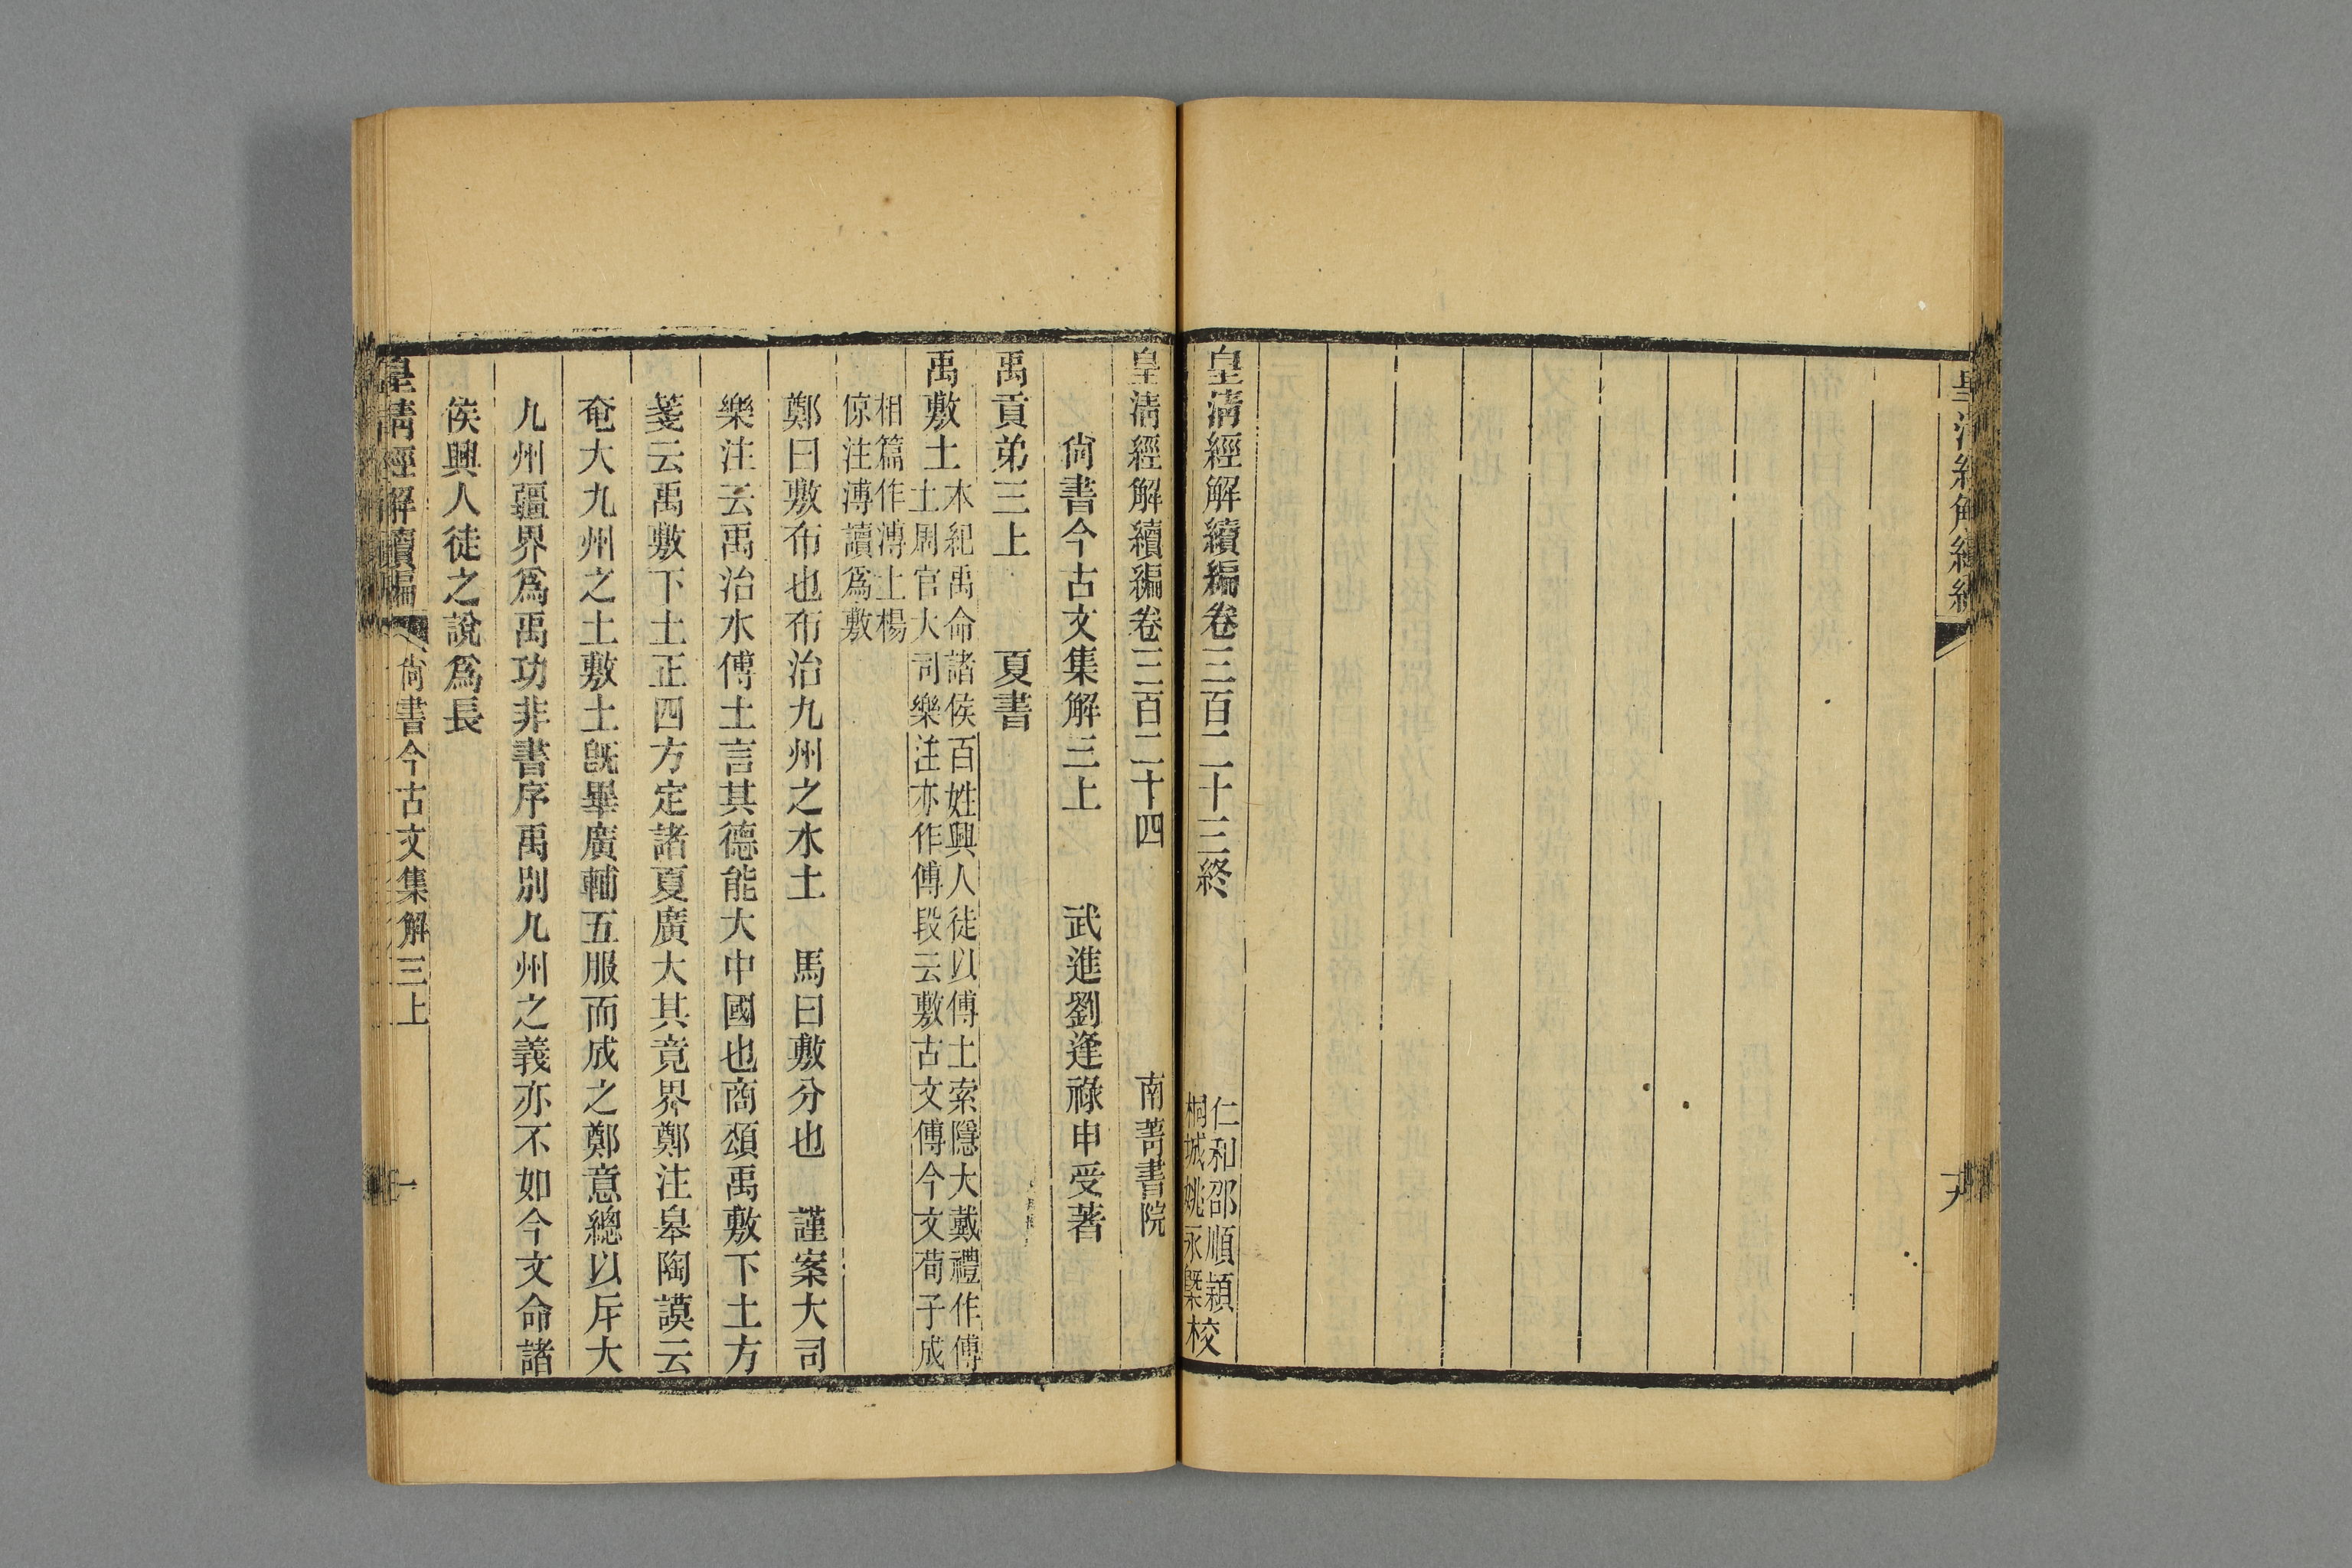 皇清經解續編
十九
皇清經解續編卷三百二十三終
仁和邵順潁
桐城姚永㮣校
皇清經解續編卷三百二十四 南菁書院
尙書今古文集解三上 武進劉逢祿申受著
禹貢弟三上 夏書
禹敷土
本紀禹命諸侯百姓興人徒以傅土索隱大戴禮作傅
土周官大司樂注亦作傅段云敷古文傅今文荀子成
相篇作溥土楊
倞注溥讀爲敷
鄭曰敷布也布治九州之水土 馬曰敷分也 謹案大司
樂注云禹治水傅土言其德能大中國也商頌禹敷下土方
箋云禹敷下土正四方定諸夏廣大其竟界鄭注皋陶謨云
奄大九州之土敷土旣畢廣輔五服而成之鄭意總以斥大
九州疆界爲禹功非書序禹別九州之義亦不如今文命諸
侯興人徒之說爲長
皇清經解續編 尙書今古文集解三上 一